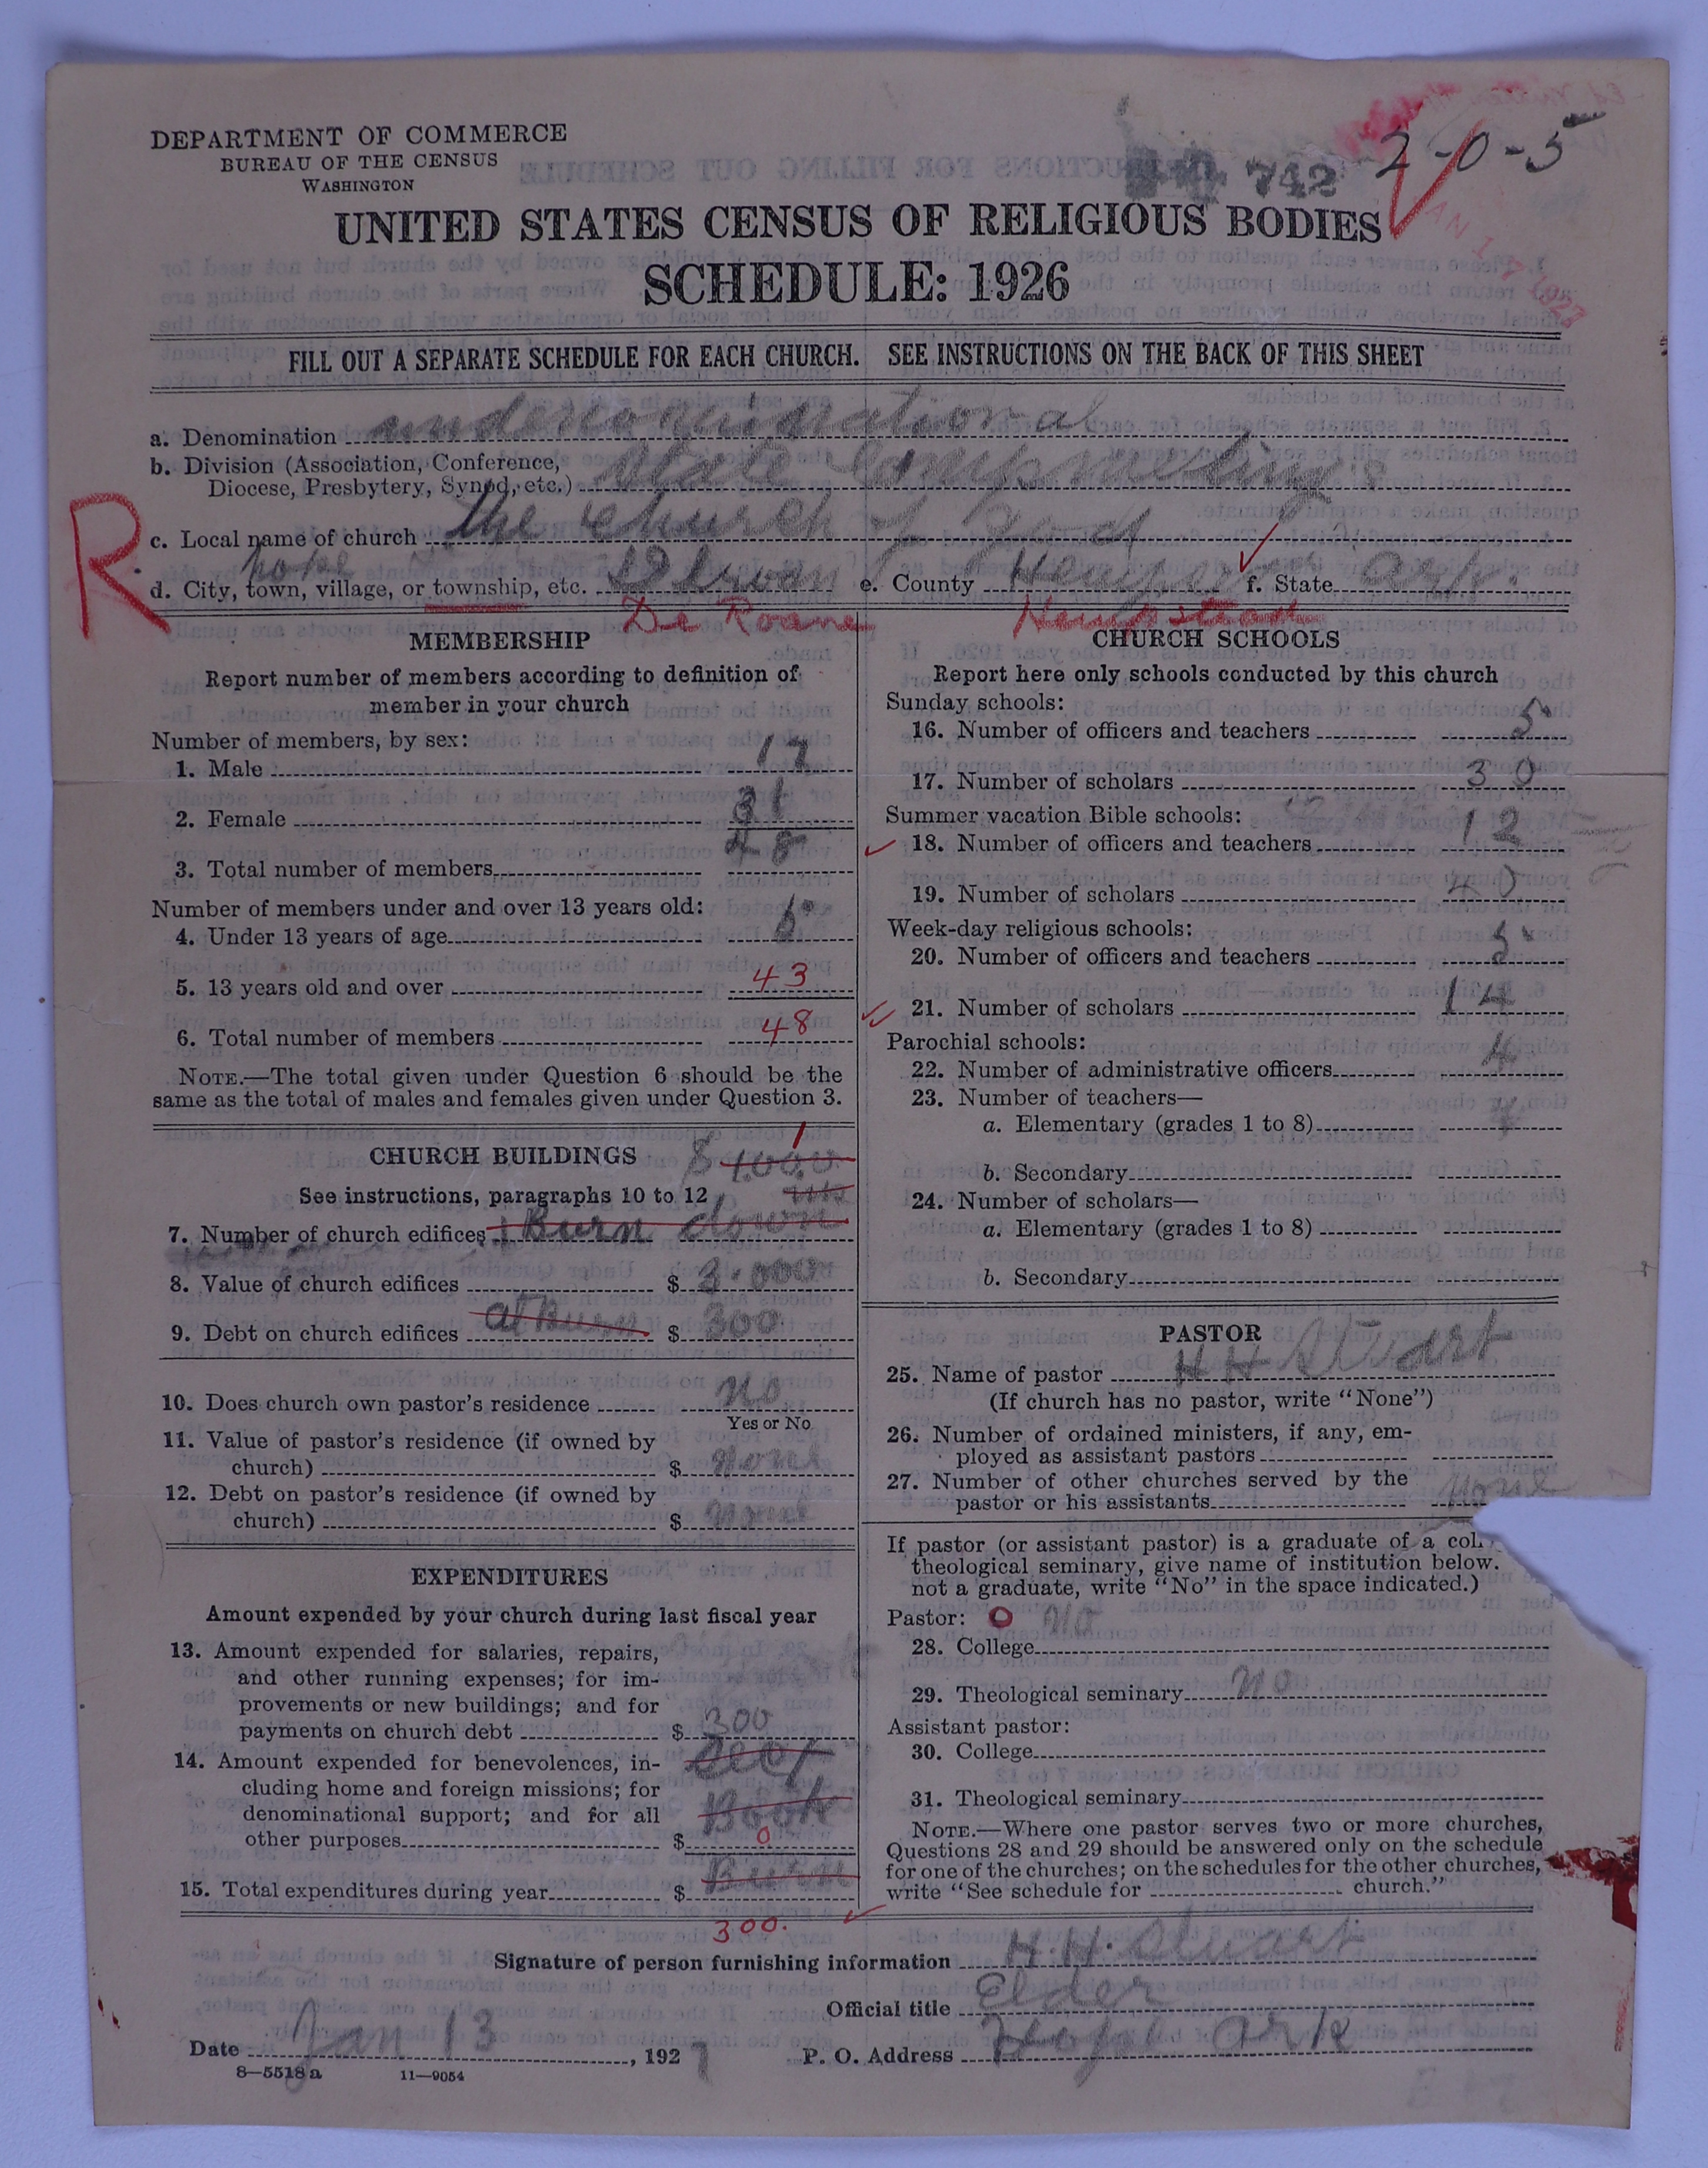 DEPARTMENT OF COMMERCE
BUREAU OF THE CENSUS
WASHINGTON
742
2-0-5
UNITED STATES CENSUS OF RELIGIOUS BODIES
SCHEDULE: 1926
FILL OUT A SEPARATE SCHEDULE FOR EACH CHURCH. SEE INSTRUCTIONS ON THE BACK OF THIS SHEET
a. Denomination undenominational
b. Division (Association, Conference,
Diocese, Presbytery, Synod, etc.) State Campmeeting
R
c. Local name of church the Church of God
hope
d. City, town, village, or township, etc. e. County Hemp f. State Ark.
De Roane Hempstead
MEMBERSHIP
Report number of members according to definition of
member in your church
Number of members, by sex:
1. Male 17
2. Female 31
48
3. Total number of members
Number of members under and over 13 years old:
4. Under 13 years of age
5. 13 years old and over 43
6. Total number of members 48
NOTE.—The total given under Question 6 should be the
same as the total of males and females given under Question 3.
1
CHURCH BUILDINGS
See instructions, paragraphs 10 to 12
7. Number of church edifices 1 Burn down
8. Value of church edifices $ 3.000
9. Debt on church edifices at Burn $ 300
10. Does church own pastor's residence no
Yes or No
11. Value of pastor's residence (if owned by
church) $ none
12. Debt on pastor's residence (if owned by
church) $ none
EXPENDITURES
Amount expended by your church during last fiscal year
13. Amount expended for salaries, repairs,
and other running expenses; for im-
provements or new buildings; and for
payments on church debt $ 300
14. Amount expended for benevolences, in-
cluding home and foreign missions; for
denominational support; and for all Book
other purposes $ 0
Burn
15. Total expenditures during year $
300.
CHURCH SCHOOLS
Report here only schools conducted by this church
Sunday schools:
16. Number of officers and teachers 5
17. Number of scholars 30
Summer vacation Bible schools:
18. Number of officers and teachers 12
19. Number of scholars 40
Week-day religious schools:
20. Number of officers and teachers 5
21. Number of scholars 14
Parochial schools:
22. Number of administrative officers 4
23. Number of teachers—
a. Elementary (grades 1 to 8) 4
b. Secondary
24. Number of scholars—
a. Elementary (grades 1 to 8)
b. Secondary
PASTOR
25. Name of pastor H H Stuart
(If church has no pastor, write "None")
26. Number of ordained ministers, if any, em-
ployed as assistant pastors
27. Number of other churches served by the
pastor or his assistants None
If pastor (or assistant pastor) is a graduate of a col
theological seminary, give name of institution below.
not a graduate, write "No" in the space indicated.)
Pastor: O No
28. College
29. Theological seminary no
Assistant pastor:
30. College
31. Theological seminary
NOTE.—Where one pastor serves two or more churches,
Questions 28 and 29 should be answered only on the schedule
for one of the churches; on the schedules for the other churches,
write "See schedule for church."
Signature of person furnishing information H. H. Stuart
Official title Elder
Date Jan 13, 1927 P. O. Address Hope Ark
8—5518 a 11—9054